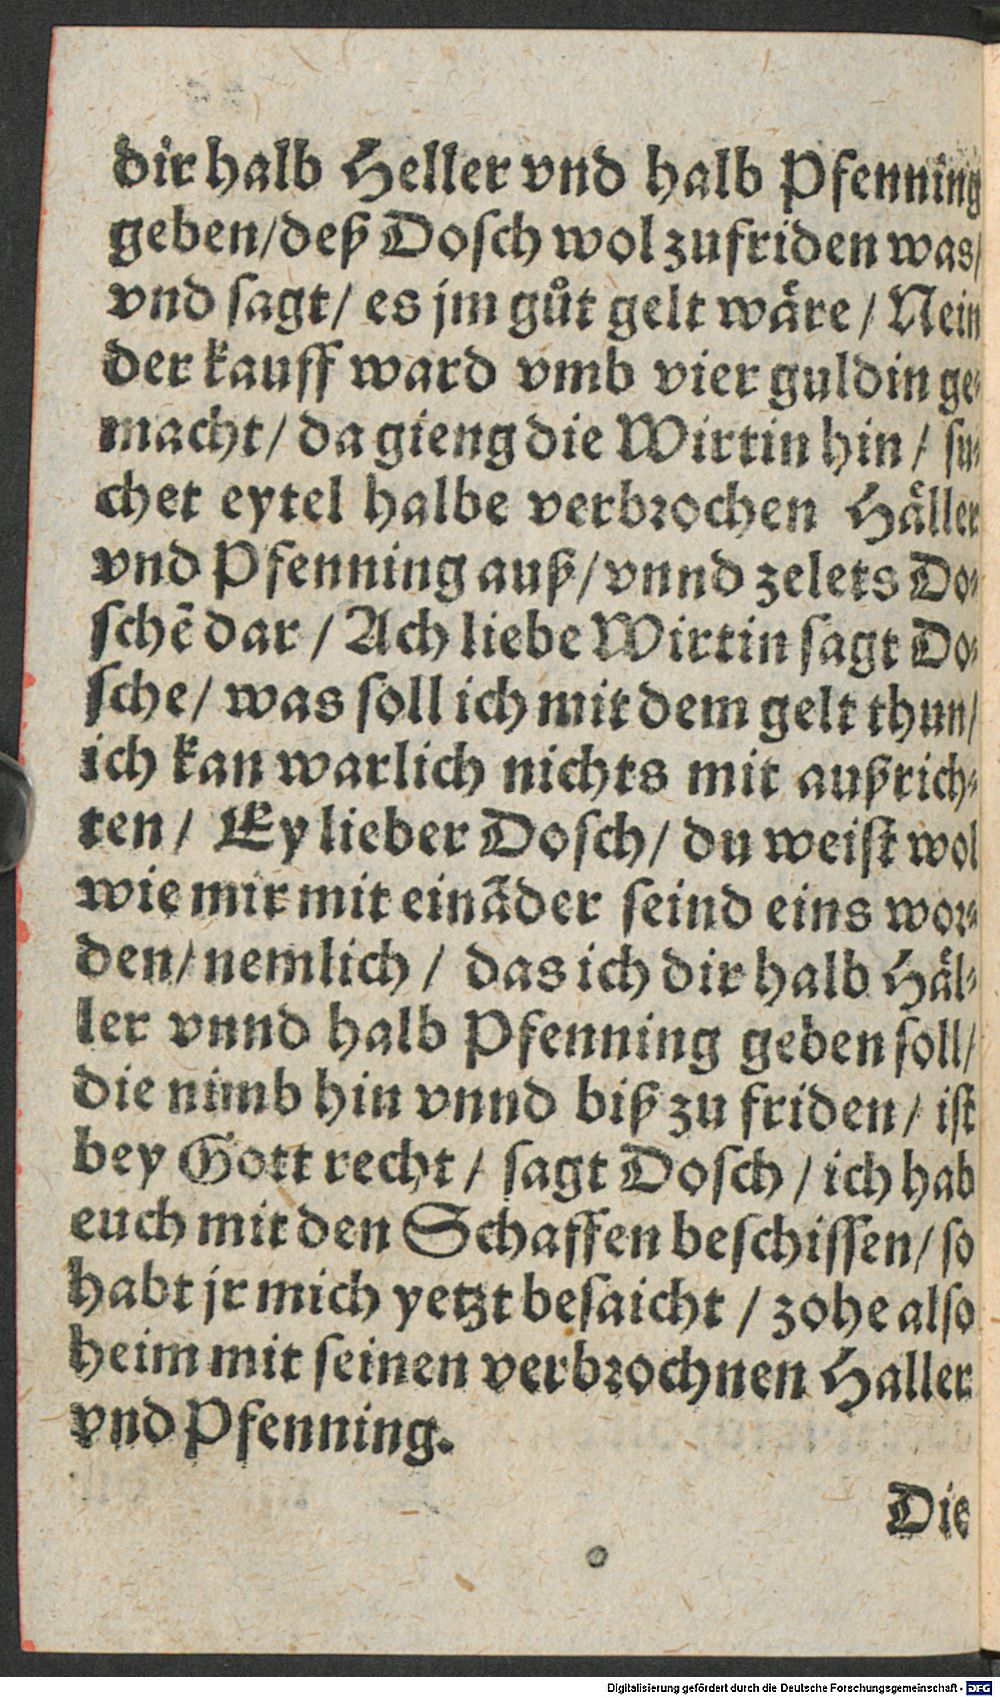 dir halb Heller vnd halb Pfenning
geben/deß Dosch wol zufriden was/
vnd sagt/ es jm gůt gelt wåre/ Nein
der kauff ward vmb vier guldin ge⸗
macht/ da gieng die Wirtin hin/ sů⸗
chet eytel halbe verbrochen Håller
vnd Pfenning auß/vnnd zelets Do⸗
schẽ dar/ Ach liebe Wirtin sagt Do⸗
sche/ was soll ich mit dem gelt thun/
ich kan warlich nichts mit außrich⸗
ten/ Ey lieber Dosch/ du weist wol
wie mir mit einãder seind eins wor⸗
den/nemlich/ das ich dir halb Hål⸗
ler vnnd halb Pfenning geben soll/
die nimb hin vnnd biß zu friden/ ist
bey Gott recht/ sagt Dosch/ ich hab
euch mit den Schaffen beschissen/ so
habt jr mich yetzt besaicht/ zohe also
heim mit seinen verbrochnen Haller
vnd Pfenning.
Die
Digitalisierung gefördert durch die Deutsche Forschungsgemeinschaft - DFG